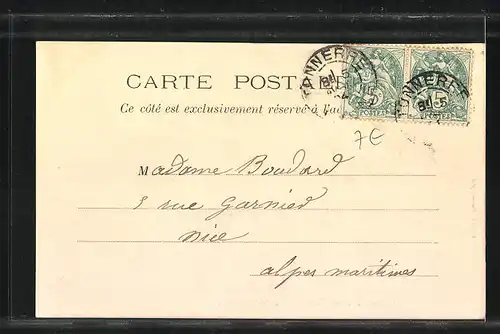 CARTE POSTALE
Ce côté est exclusivement réservé à l'ad
TONNERRE
TONNERRE
5
POSTES
7€
Madame Boudard
5 rue Garnied
Nice
alpes maritimes